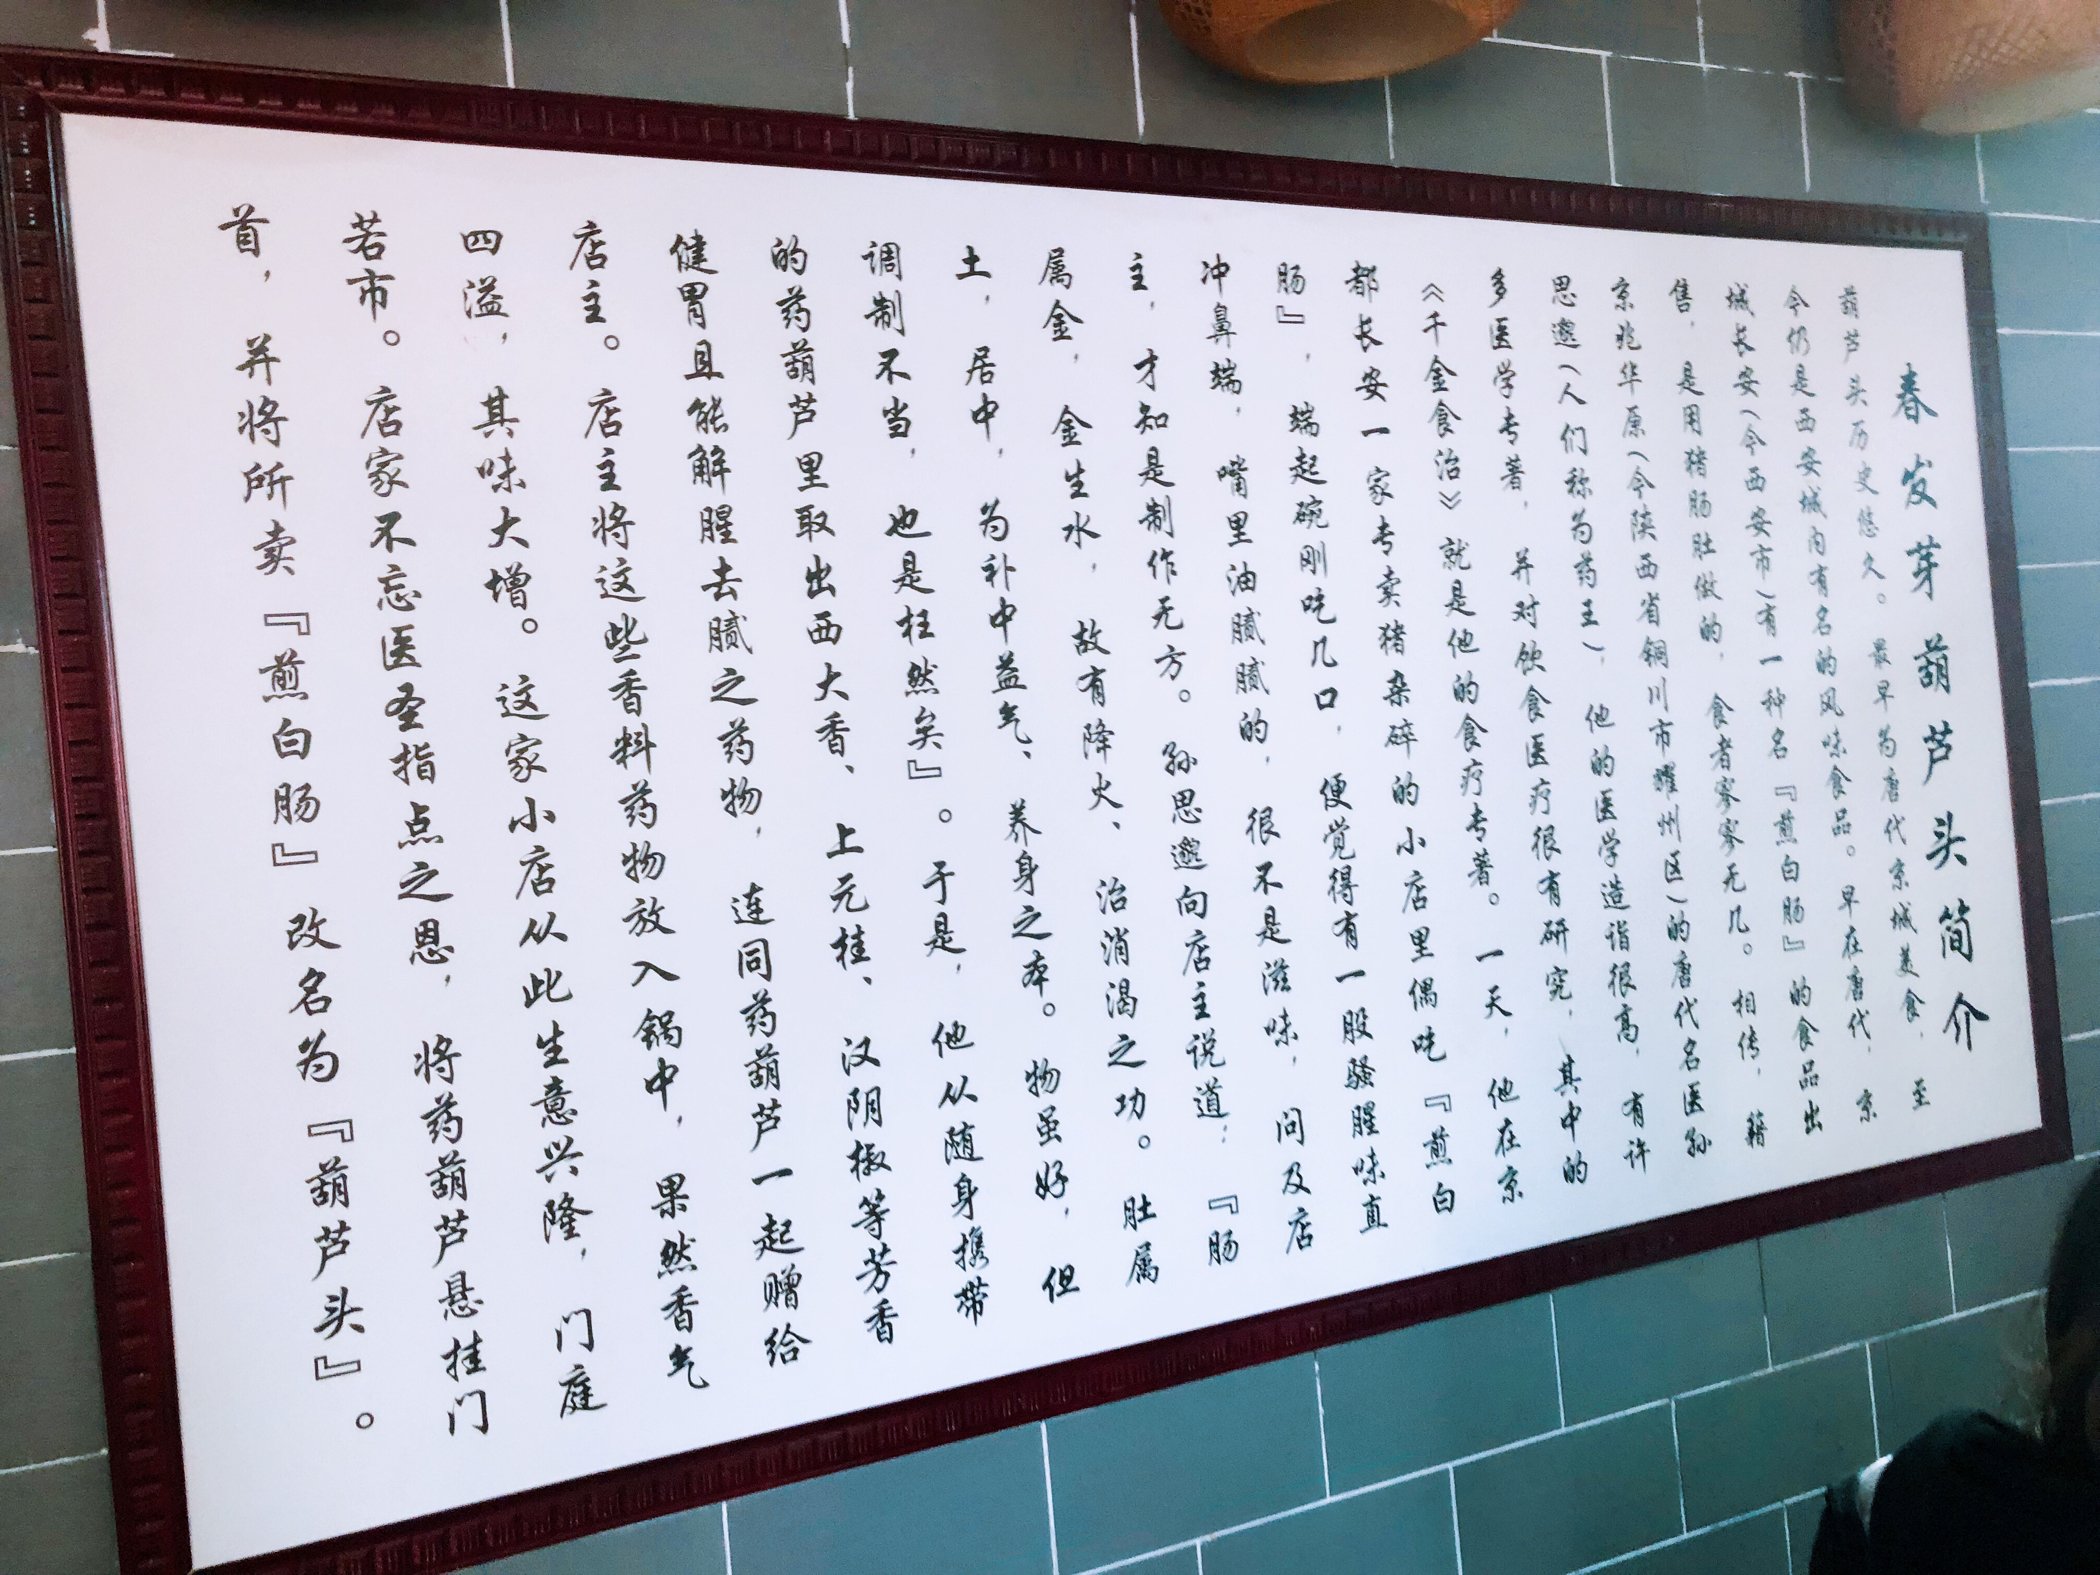 春发芽葫芦头简介
葫芦头历史悠久。最早为唐代京城美食，至
今仍是西安城内有名的风味食品。早在唐代，京
城长安(今西安市)有一种名『煎白肠』的食品出
售，是用猪肠肚做的，食者寥寥无几。相传，籍
京兆华原(今陕西省铜川市耀州区)的唐代名医孙
思邈(人们称为药王)，他的医学造诣很高，有许
多医学专著，并对饮食医疗很有研究，其中的
《千金食治》就是他的食疗专著。一天，他在京
都长安一家专卖猪杂碎的小店里偶吃『煎白
肠』，端起碗刚吃几口，便觉得有一股骚腥味直
冲鼻端，嘴里油腻腻的，很不是滋味，问及店
主，才知是制作无方。孙思邈向店主说道：『肠
属金，金生水，故有降火、治消渴之功。肚属
土，居中，为补中益气、养身之本。物虽好，但
调制不当，也是枉然矣』。于是，他从随身携带
的药葫芦里取出西大香、上元桂、汉阴椒等芳香
健胃且能解腥去腻之药物，连同药葫芦一起赠给
店主。店主将这些香料药物放入锅中，果然香气
四溢，其味大增。这家小店从此生意兴隆，门庭
若市。店家不忘医圣指点之恩，将药葫芦悬挂门
首，并将所卖『煎白肠』改名为『葫芦头』。